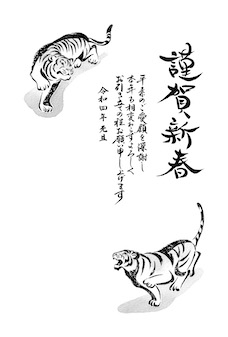 謹賀新春
平素のご愛顧を深謝し
本年も相変わらずよろしく
お引き立ての程お願い申し上げます
令和四年 元旦